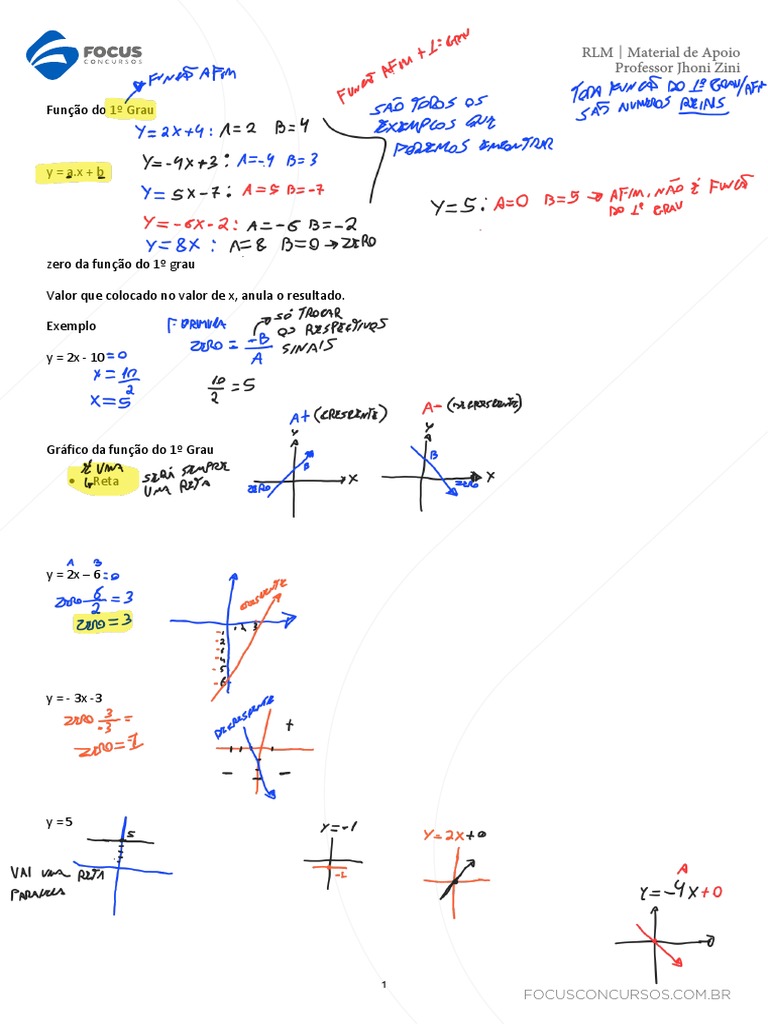 FOCUS
CONCURSOS
RLM | Material de Apoio
Professor Jhoni Zini
FUNÇÃO AFIM
FUNÇÃO AFIM + 1º GRAU
Função do 1º Grau
SÃO TODOS OS
EXEMPLOS QUE
PODEMOS ENCONTRAR
TODA FUNÇÃO DO 1º GRAU/AFI
SÃO NUMEROS REAIS
Y=2X+4: A=2 B=4
Y=-4X+3: A=-4 B=3
y = a.x + b
Y=5X-7: A=5 B=-7
Y=5: A=0 B=5 → AFIM. NÃO É FUNÇÃO
DO 1º GRAU
Y=-6X-2: A=-6 B=-2
Y=8X: A=8 B=0 → ZERO
zero da função do 1º grau
Valor que colocado no valor de x, anula o resultado.
Exemplo
FORMULA
ZERO = -B/A
SÓ TROCAR
OS RESPECTIVOS
SINAIS
y = 2x - 10 = 0
X = 10/2
X = 5
10/2 = 5
A+ (CRESCENTE)
A- (DECRESCENTE)
Y
Y
Gráfico da função do 1º Grau
É UMA
• Reta
SERÁ SEMPRE
UMA RETA
B
X
ZERO
B
X
ZERO
A B
y = 2x – 6 = 0
ZERO 6/2 = 3
ZERO = 3
CRESCENTE
1 2 3
-1
-2
-3
-4
-5
-6
y = - 3x -3
ZERO 3/-3 =
ZERO = -1
DECRESCENTE
+
-
-
y = 5
5
VAI UMA RETA
PARALELA
Y=-1
-1
Y=2X+0
A
Y=-4X+0
1
FOCUSCONCURSOS.COM.BR